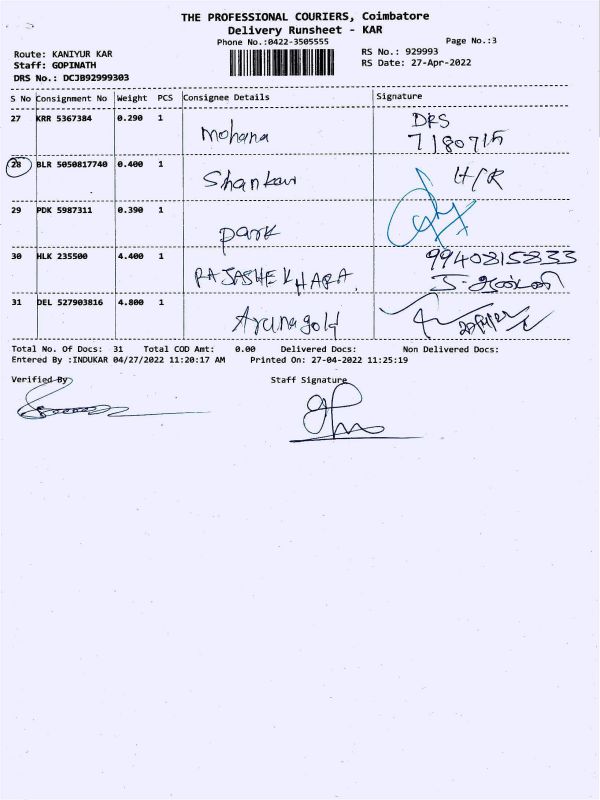 THE PROFESSIONAL COURIERS, Coimbatore
Delivery Runsheet - KAR
Phone No.:0422-3505555
Page No.:3
Route: KANIYUR KAR
RS No.: 929993
Staff: GOPINATH
RS Date: 27-Apr-2022
DRS No.: DCJB92999303
S No Consignment No Weight PCS Consignee Details Signature
27 KRR 5367384 0.290 1 Mohana DRS
7180715
28 BLR 5050817740 0.400 1 Shankar H/R
29 PDK 5987311 0.390 1 park
30 HLK 235500 4.400 1 RAJASHEKHARA. 9940815833
31 DEL 527903816 4.800 1 Arunagold
Total No. Of Docs: 31 Total COD Amt: 0.00 Delivered Docs: Non Delivered Docs:
Entered By :INDUKAR 04/27/2022 11:20:17 AM Printed On: 27-04-2022 11:25:19
Verified By Staff Signature